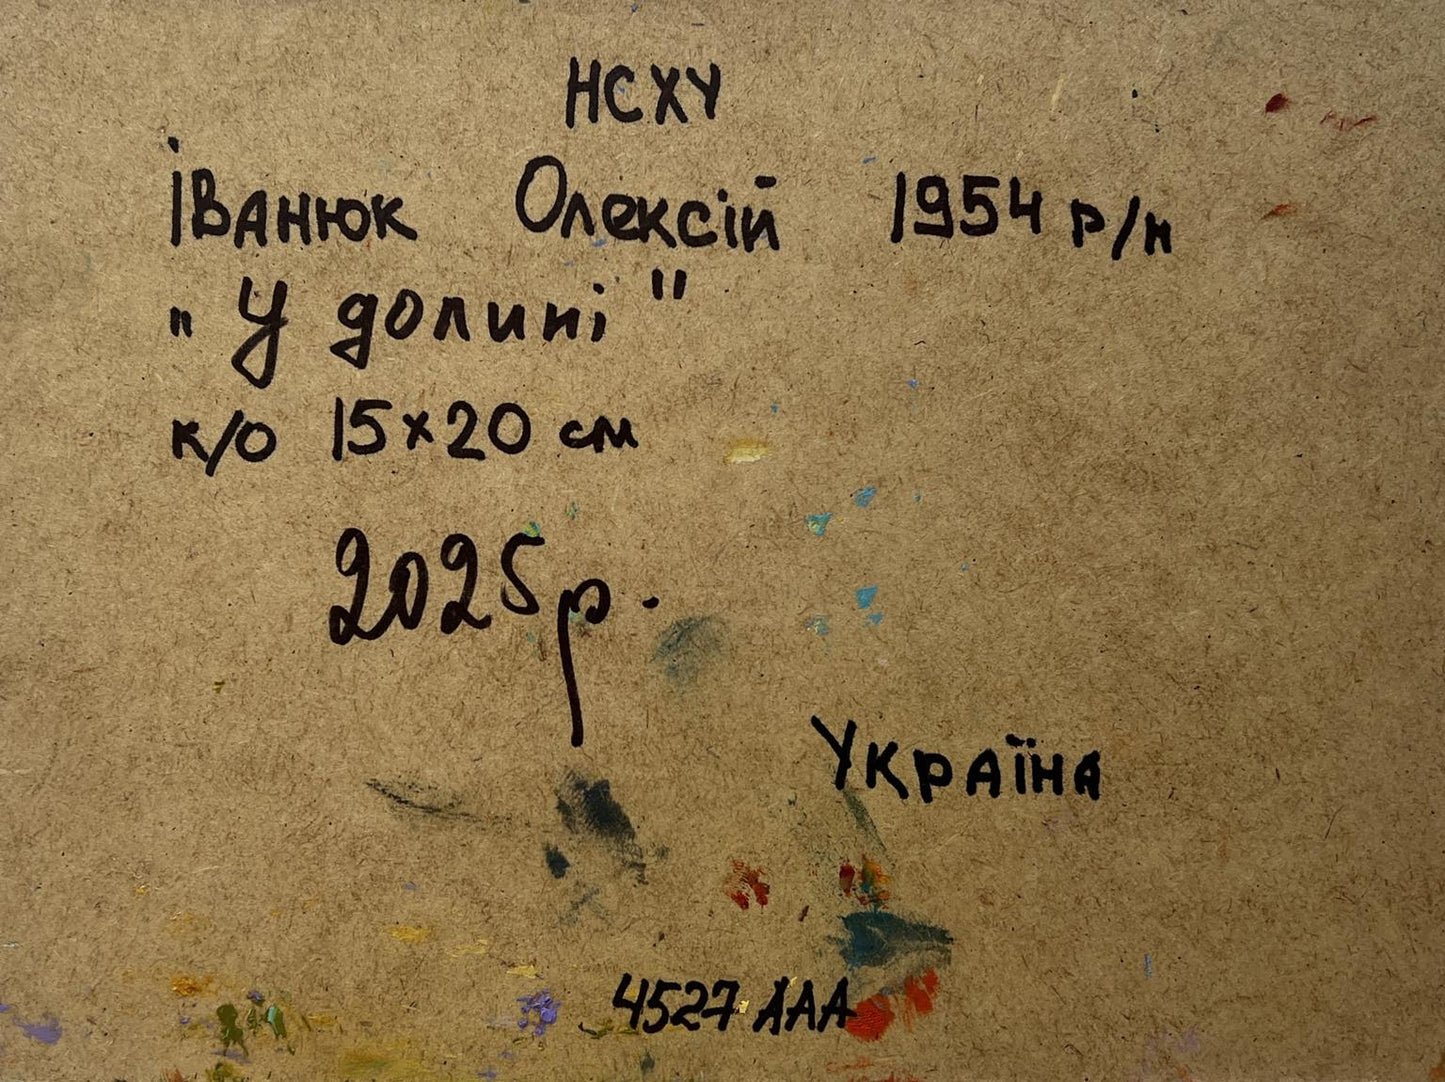 НСХУ
Іванюк Олексій 1954 р/н
„У долині"
к/о 15×20 см
2025р.
Україна
4527 ААА